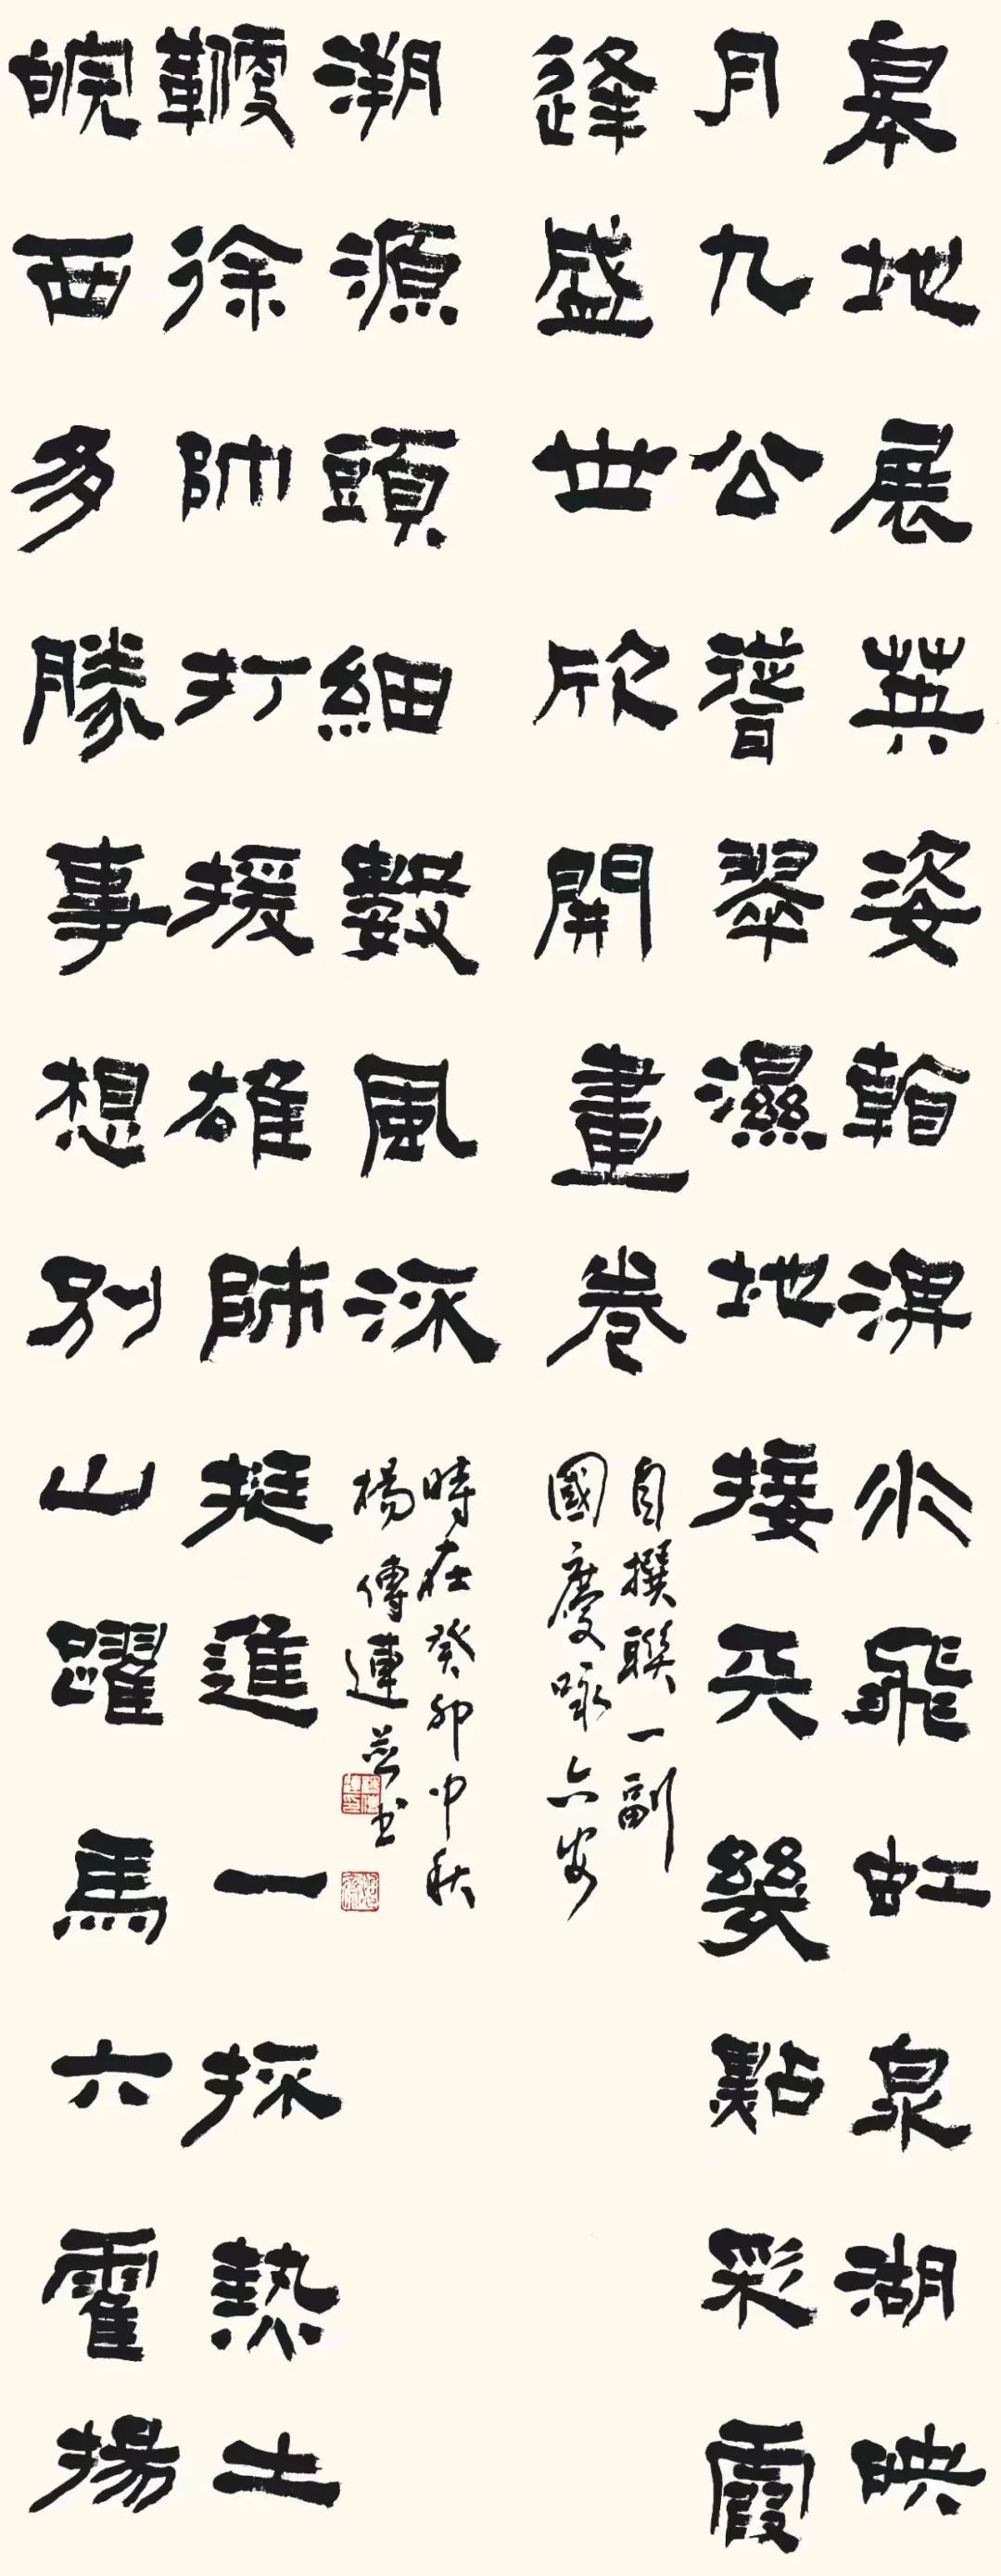 皋地展英姿看淠水飛虹泉湖映
月九公濳翠濕地接天幾點彩霞
逢盛世欣開畫卷
自撰聯一副
國慶咏六安
皖西多勝事想別山躍馬六霍揚
鞭徐帥打援雄師挺進一抔熱土
溯源頭細數風流
時在癸卯中秋
楊傳連並書